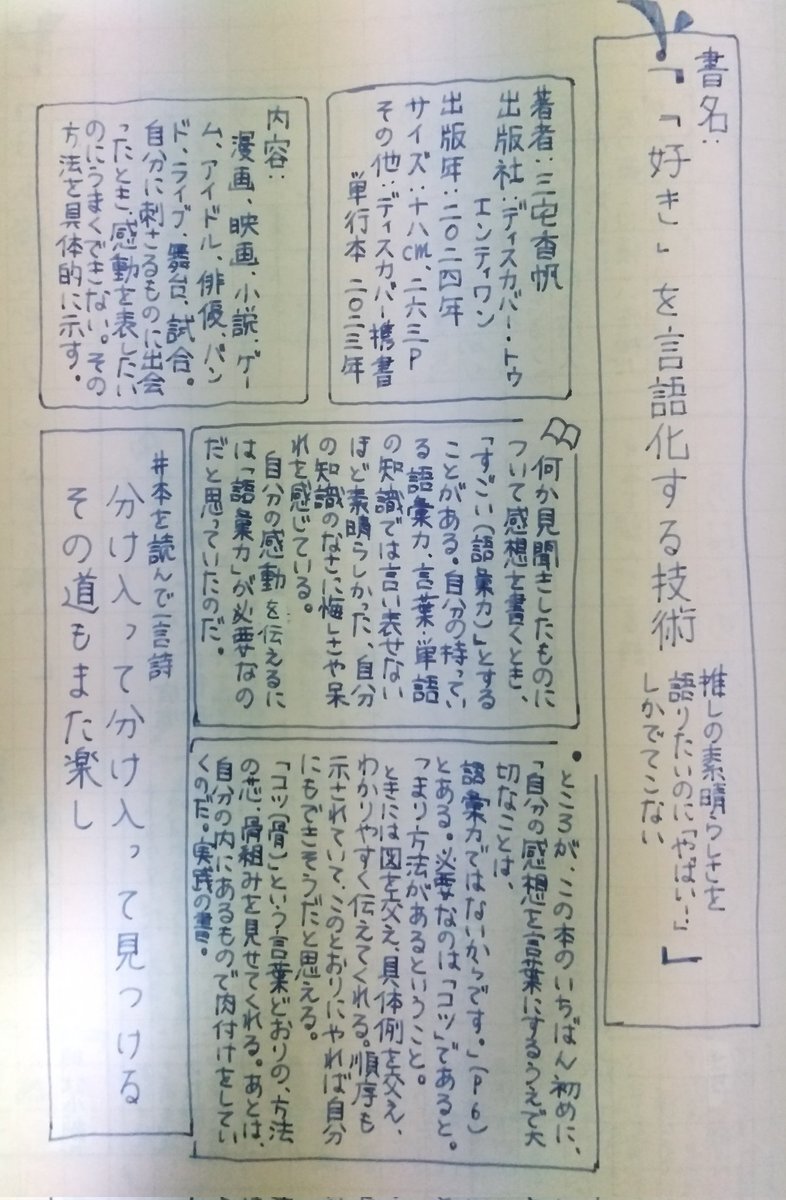 書名:
『「好き」を言語化する技術
推しの素晴らしさを
語りたいのに「やばい!」
しかでてこない』
著者:三宅香帆
出版社:ディスカバー・トゥ
エンティワン
出版年:二〇二四年
サイズ:十八cm、二六三P
その他:ディスカバー携書
単行本 二〇二三年
内容:
漫画、映画、小説、ゲー
ム、アイドル、俳優、バン
ド、ライブ、舞台、試合。
自分に刺さるものに出会
ったとき、感動を表したい
のにうまくできない。その
方法を具体的に示す。
何か見聞きしたものに
ついて感想を書くとき、
「すごい(語彙力)」とする
ことがある。自分の持ってい
る語彙力、言葉・単語
の知識では言い表せない
ほど素晴らしかった、自分
の知識のなさに悔しさや呆
れを感じている。
自分の感動を伝えるに
は「語彙力」が必要なの
だと思っていたのだ。
・ところが、この本のいちばん初めに、
「自分の感想を言葉にするうえで大
切なことは、
語彙力ではないからです。」(P6)
とある。必要なのは「コツ」であると。
つまり方法があるということ。
ときには図を交え、具体例を交え、
わかりやすく伝えてくれる。順序も
示されていて、このとおりにやれば自分
にもできそうだと思える。
「コツ(骨)」という言葉どおりの、方法
の芯、骨組みを見せてくれる。あとは、
自分の内にあるもので肉付けをしてい
くのだ。実践の書。
#本を読んで一言詩
分け入って分け入って見つける
その道もまた楽し